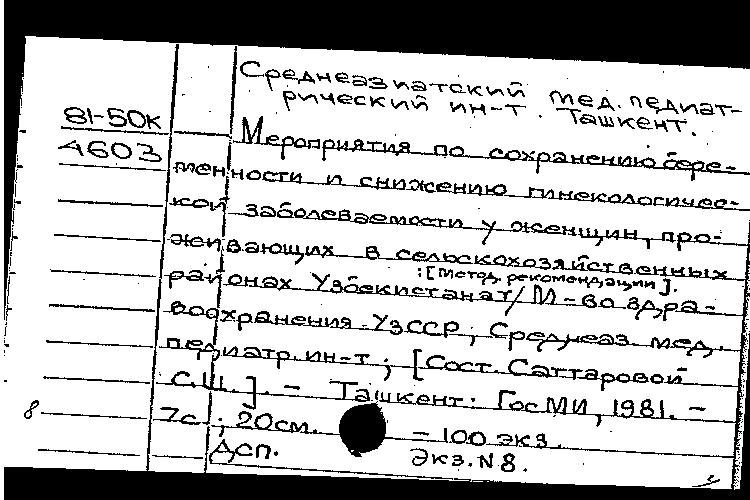 Среднеазиатский мед. педиат-
рический ин-т. Ташкент.
81-50к
4603
Мероприятия по сохранению бере-
менности и снижению гинекологичес-
кой заболеваемости у женщин, про-
живающих в сельскохозяйственных
: [Метод. рекомендации].
районах Узбекистана /М-во здра-
воохранения УзССР, Среднеаз. мед.
педиатр. ин-т ; [Сост. Саттаровой
С.Ш.]. - Ташкент: ГосМИ, 1981. -
8
7с.; 20см. - 100 экз.
ДСП. Экз. N 8.